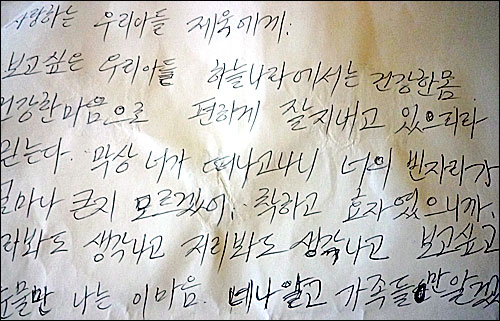 사랑하는 우리아들 제욱에게.
보고싶은 우리아들 하늘나라에서는 건강한몸
건강한마음으로 편하게 잘지내고 있으리라
믿는다. 막상 너가 떠나고나니 너의 빈자리가
얼마나 큰지 모르겠어. 착하고 효자였으니까
라봐도 생각나고 저리봐도 생각나고 보고싶고
눈물만 나는 이마음. 너나알고 가족들만알겠